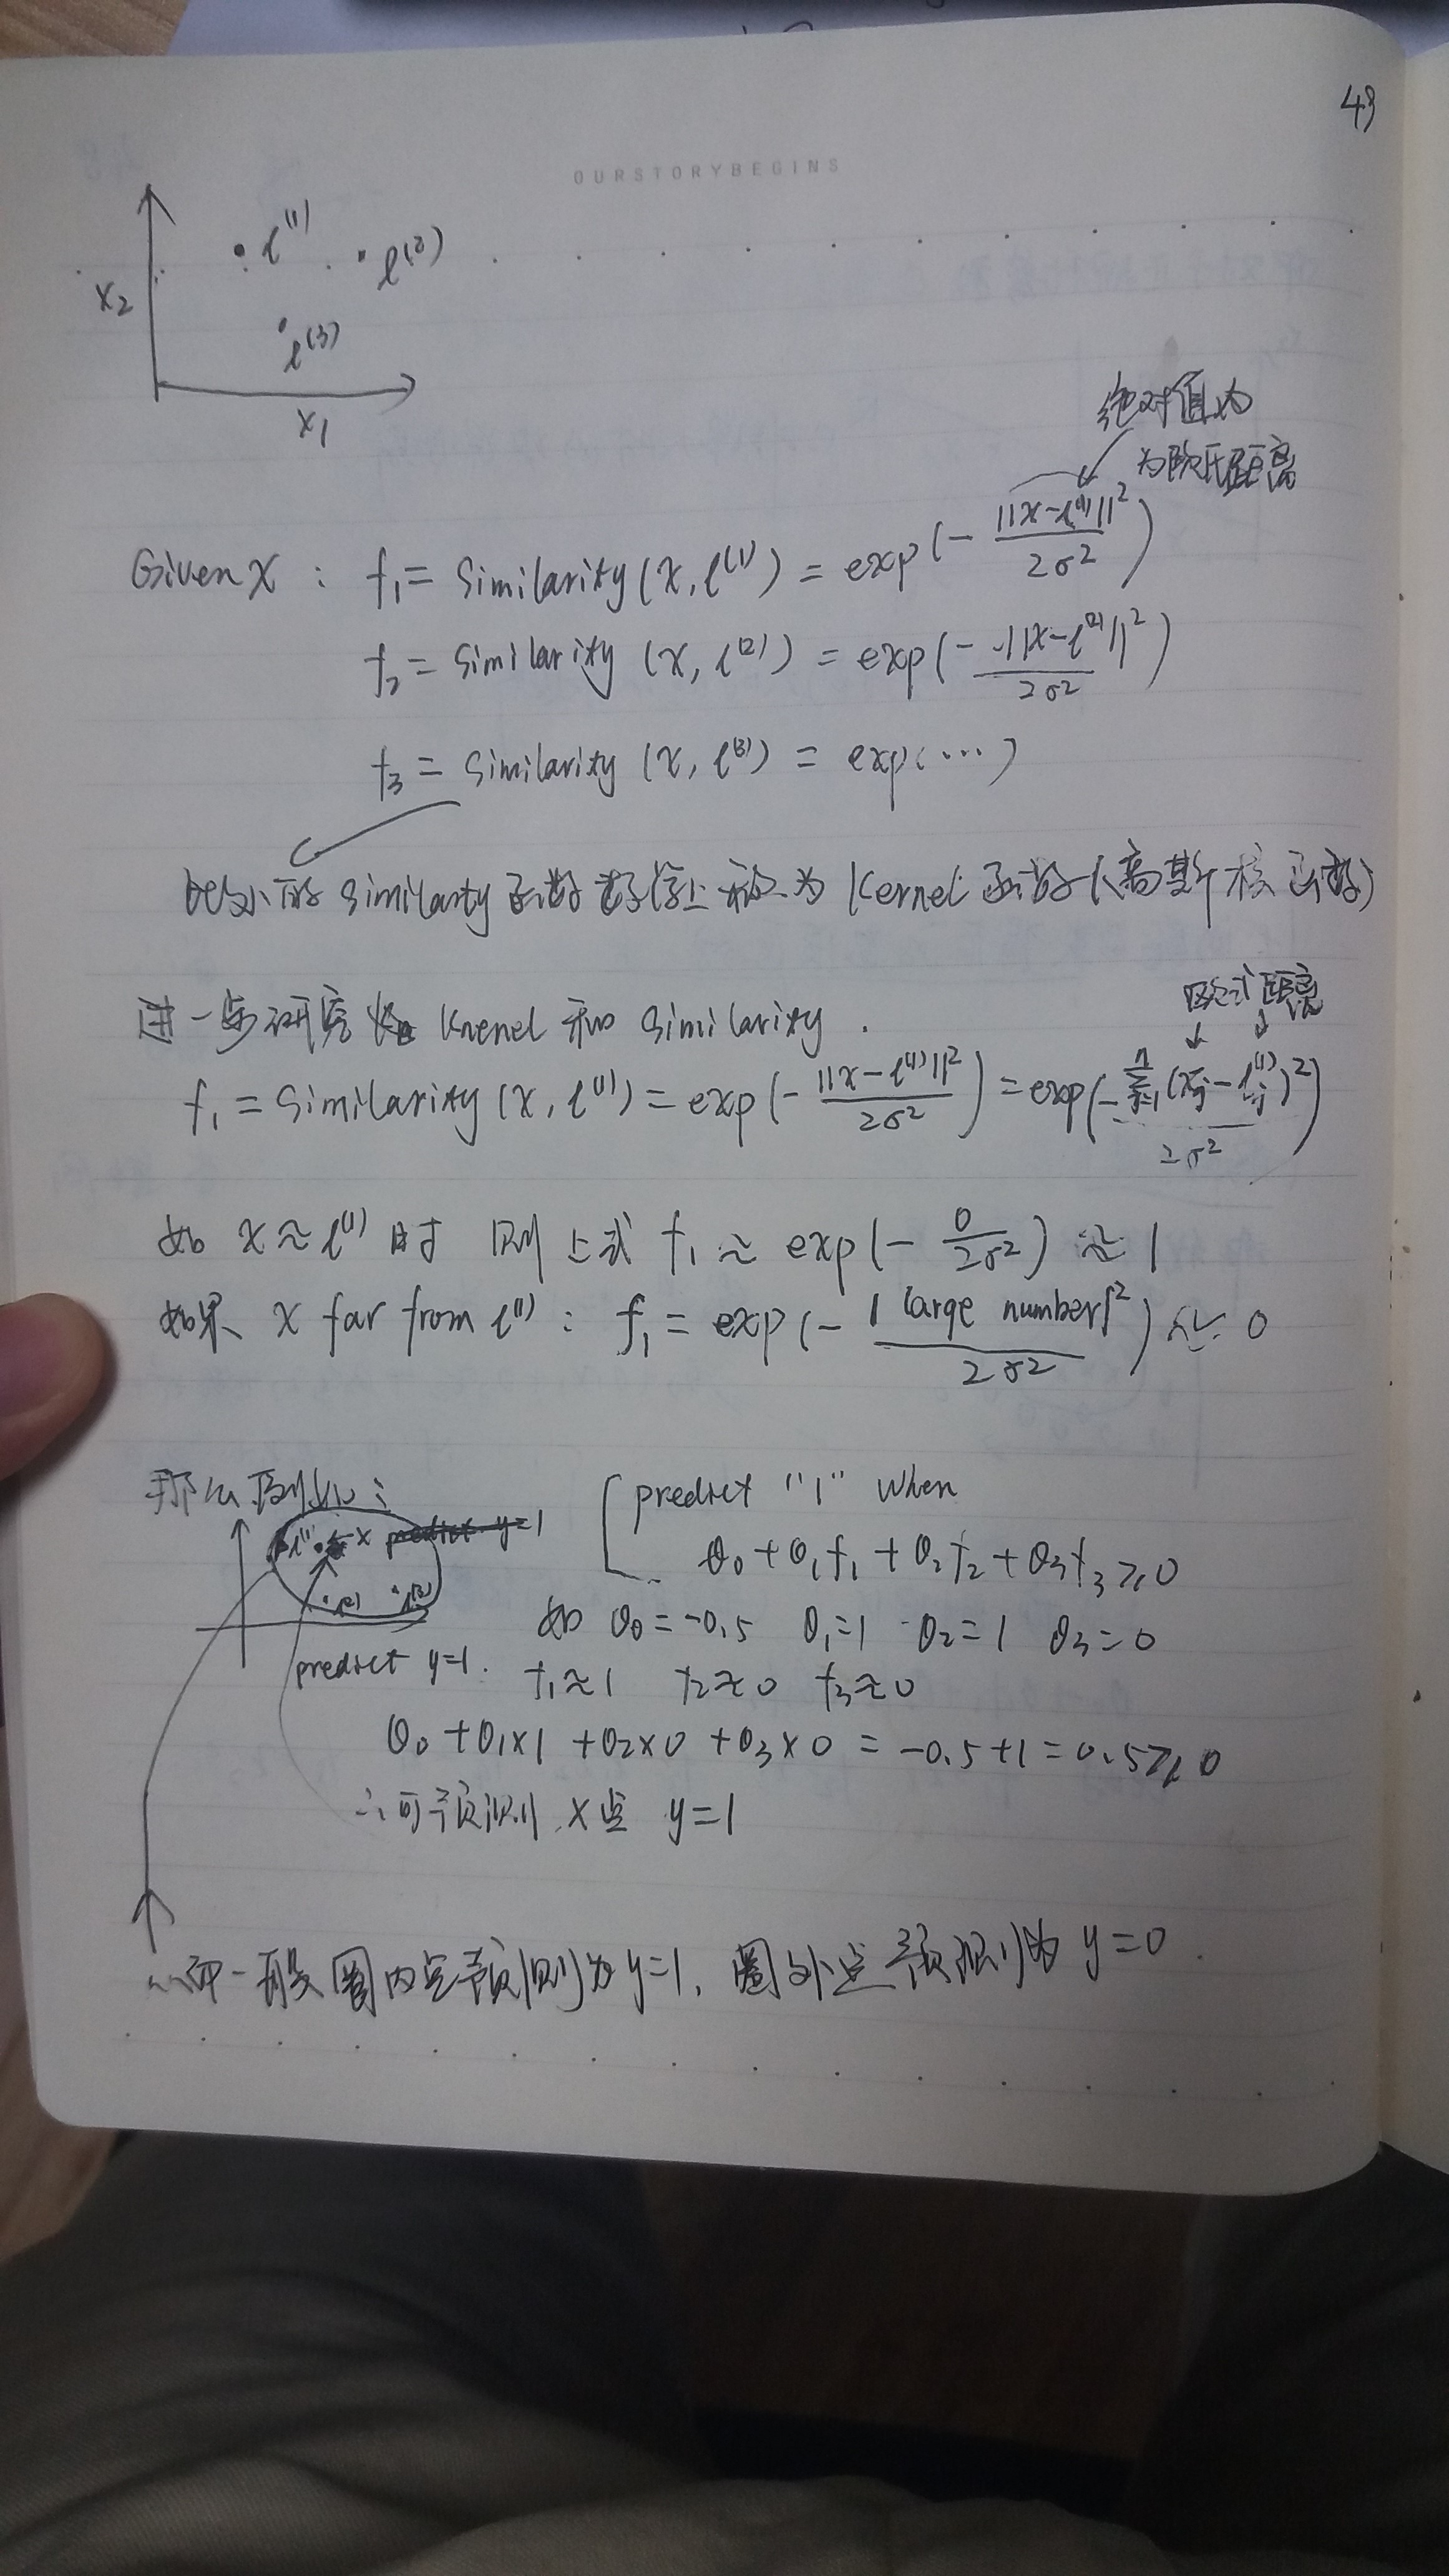 49
OURSTORYBEGINS
l⁽¹⁾ l⁽²⁾
x₂
l⁽³⁾
x₁
绝对值为
为欧氏距离
Given x : f₁ = Similarity(x, l⁽¹⁾) = exp(- ||x-l⁽¹⁾||² / 2σ²)
f₂ = Similarity (x, l⁽²⁾) = exp(- ||x-l⁽²⁾||² / 2σ²)
f₃ = Similarity (x, l⁽³⁾) = exp(···)
的 Similarty 函数 数学上称为 Kernel 函数 (高斯核函数)
进一步研究 Knenel 和 Similarity .
欧式距离
f₁ = Similarity (x, l⁽¹⁾) = exp(- ||x-l⁽¹⁾||² / 2σ²) = exp(- Σⁿⱼ₌₁(xⱼ - lⱼ⁽¹⁾)² / 2σ²)
如 x ≈ l⁽¹⁾ 时 则上式 f₁ ≈ exp(- 0 / 2σ²) ≈ 1
如果 x far from l⁽¹⁾ : f₁ = exp(- (large number)² / 2σ²) ≈ 0
那么例如:
l⁽¹⁾ x predict y=1
l⁽²⁾ l⁽³⁾
predict y=1.
predict "1" when
θ₀ + θ₁f₁ + θ₂f₂ + θ₃f₃ ≥ 0
如 θ₀ = -0.5 θ₁=1 θ₂=1 θ₃=0
f₁≈1 f₂≈0 f₃≈0
θ₀ + θ₁×1 + θ₂×0 + θ₃×0 = -0.5+1 = 0.5 ≥ 0
∴可预测 x点 y=1
一般圈内点预测为 y=1, 圈外点预测为 y=0 .